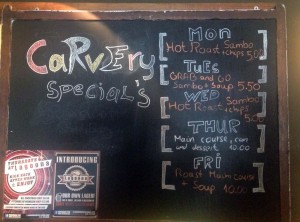 CaRvERy
SpEcial's
MON
Hot Roast Sambo
+ chips 5.00
TUES
GRAB and GO
Sambo + Soup 5.50
WED
Hot Roast Sambo
+ chips
THUR
Main course, can
and dessert 10.00
FRI
Roast Main course
+ Soup 10.00
THURSDAYS @
INTRODUCING
OUR OWN LAGER!